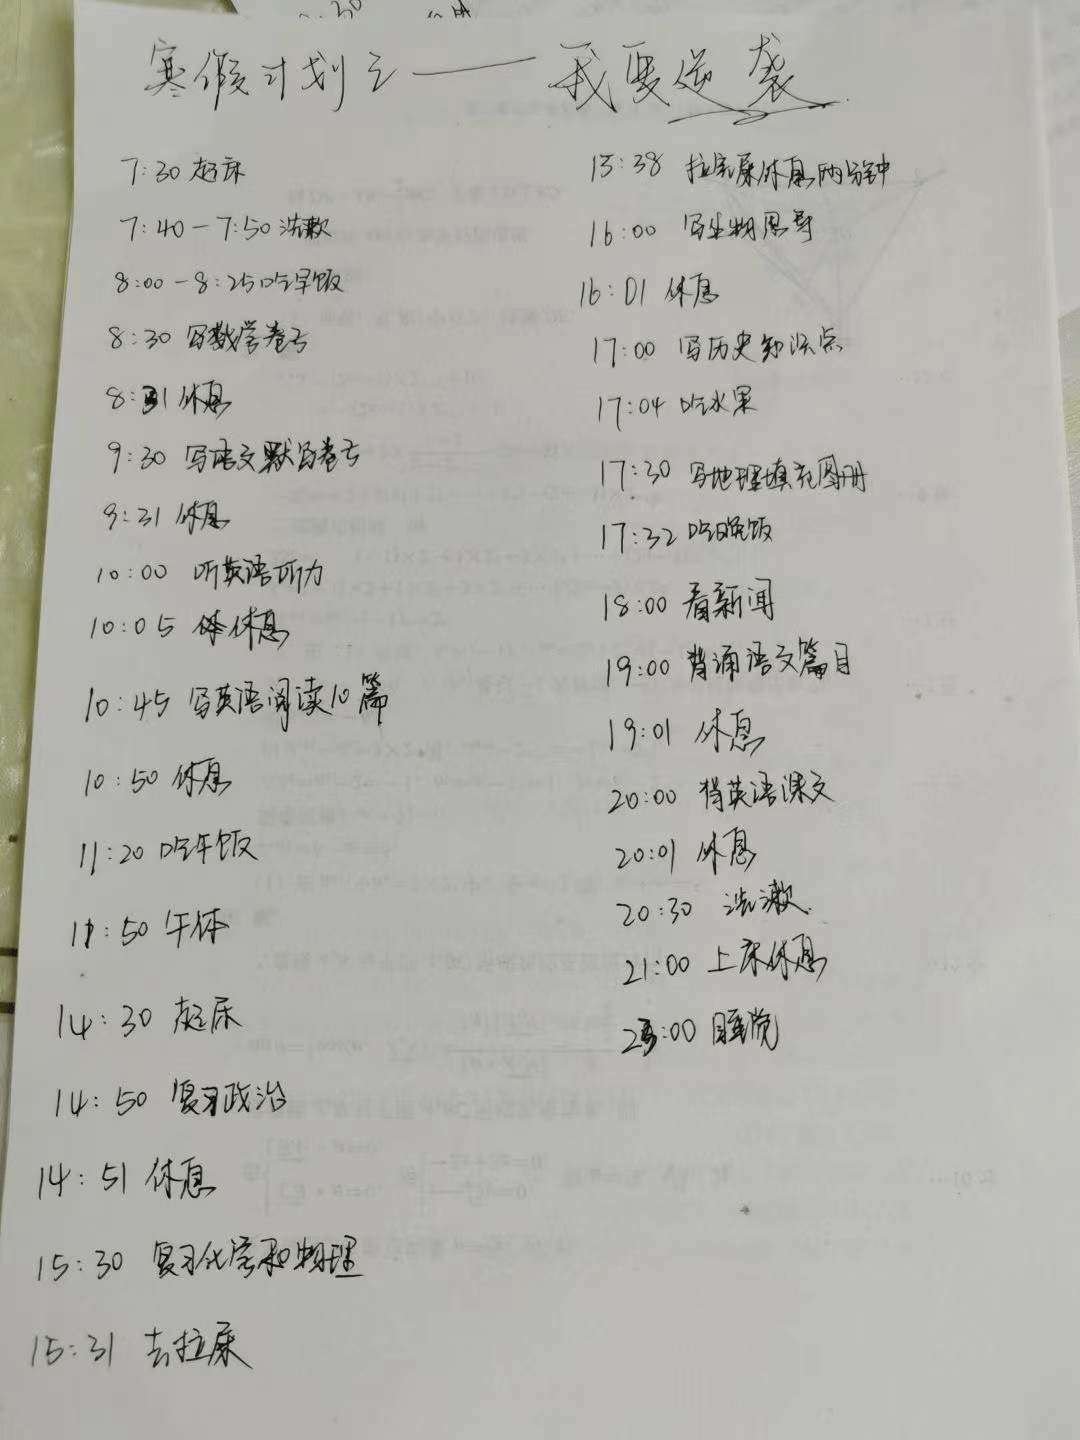 寒假计划之——我要逆袭
7:30 起床
7:40-7:50 洗漱
8:00-8:25吃早饭
8:30 写数学卷子
8:31 休息
9:30 写语文默写卷子
9:31 休息
10:00 听英语听力
10:05 休息
10:45 写英语阅读10篇
10:50 休息
11:20 吃午饭
11:50 午休
14:30 起床
14:50 复习政治
14:51 休息
15:30 复习化学和物理
15:31 去拉屎
15:38 拉完屎休息两分钟
16:00 写生物思导
16:01 休息
17:00 写历史知识点
17:04 吃水果
17:30 写地理填充图册
17:32 吃晚饭
18:00 看新闻
19:00 背诵语文篇目
19:01 休息
20:00 背英语课文
20:01 休息
20:30 洗漱
21:00 上床休息
23:00 睡觉